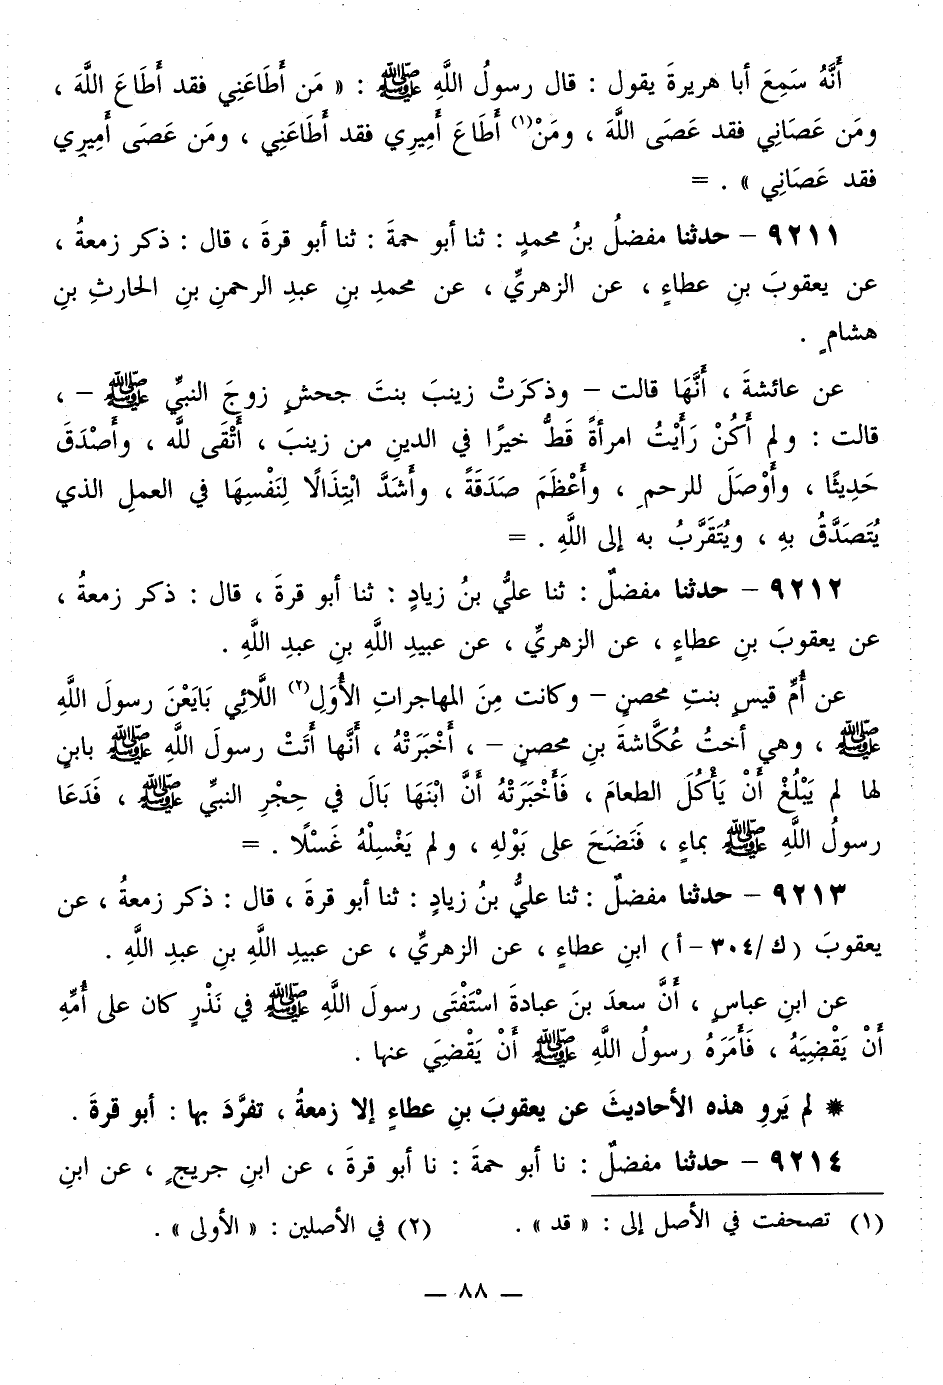 أَنَّهُ سَمِعَ أبا هريرةَ يقول : قال رسولُ اللَّهِ ﷺ : « مَن أَطَاعَنِي فقد أَطَاعَ اللَّهَ ،
ومَن عَصَانِي فقد عَصَى اللَّهَ ، ومَنْ(١) أَطَاعَ أَمِيرِي فقد أَطَاعَنِي ، ومَن عَصَى أَمِيرِي
فقد عَصَانِي » . =
٩٢١١ – حدثنا مفضلُ بنُ محمدٍ : ثنا أبو حمةَ : ثنا أبو قرةَ ، قال : ذكر زمعةُ ،
عن يعقوبَ بنِ عطاءٍ ، عن الزهريِّ ، عن محمدِ بنِ عبدِ الرحمنِ بنِ الحارثِ بنِ
هشامٍ .
عن عائشةَ ، أَنَّهَا قالت – وذكرَتْ زينبَ بنتَ جحشٍ زوجَ النبيِّ ﷺ – ،
قالت : ولم أَكُنْ رَأَيْتُ امرأةً قَطُّ خيرًا في الدينِ من زينبَ ، أَتْقَى للَّه ، وأَصْدَقَ
حَدِيثًا ، وأَوْصَلَ للرحمِ ، وأَعْظَمَ صَدَقَةً ، وأَشَدَّ ابْتِذَالًا لِنَفْسِهَا في العملِ الذي
يُتَصَدَّقُ بهِ ، ويُتَقَرَّبُ به إلى اللَّهِ . =
٩٢١٢ – حدثنا مفضلٌ : ثنا عليُّ بنُ زيادٍ : ثنا أبو قرةَ ، قال : ذكر زمعةُ ،
عن يعقوبَ بنِ عطاءٍ ، عن الزهريِّ ، عن عبيدِ اللَّهِ بنِ عبدِ اللَّهِ .
عن أُمِّ قيسٍ بنتِ محصنٍ – وكانت مِنَ المهاجراتِ الأُوَلِ(٢) اللَّائِي بَايَعْنَ رسولَ اللَّهِ
ﷺ ، وهي أختُ عُكَّاشةَ بنِ محصنٍ – ، أَخْبَرَتْهُ ، أَنَّها أَتَتْ رسولَ اللَّهِ ﷺ بابنٍ
لها لم يَبْلُغْ أَنْ يَأْكُلَ الطعامَ ، فَأَخْبَرَتْهُ أَنَّ ابْنَهَا بَالَ في حِجْرِ النبيِّ ﷺ ، فَدَعَا
رسولُ اللَّهِ ﷺ بماءٍ ، فَنَضَحَ على بَوْلهِ ، ولم يَغْسِلْهُ غَسْلًا . =
٩٢١٣ – حدثنا مفضلٌ : ثنا عليُّ بنُ زيادٍ : ثنا أبو قرةَ ، قال : ذكر زمعةُ ، عن
يعقوبَ ( ك/٣٠٤ – أ ) ابنِ عطاءٍ ، عن الزهريِّ ، عن عبيدِ اللَّهِ بنِ عبدِ اللَّهِ .
عن ابنِ عباسٍ ، أَنَّ سعدَ بنَ عبادةَ اسْتَفْتَى رسولَ اللَّهِ ﷺ في نَذْرٍ كان على أُمِّهِ
أَنْ يَقْضِيَهُ ، فَأَمَرَهُ رسولُ اللَّهِ ﷺ أَنْ يَقْضِيَ عنها .
* لم يَروِ هذه الأحاديثَ عن يعقوبَ بنِ عطاءٍ إلا زمعةُ ، تفرَّدَ بها : أبو قرةَ .
٩٢١٤ – حدثنا مفضلٌ : نا أبو حمةَ : نا أبو قرةَ ، عن ابنِ جريجٍ ، عن ابنِ
(١) تصحفت في الأصل إلى : « قد » . (٢) في الأصلين : « الأولى » .
— ٨٨ —